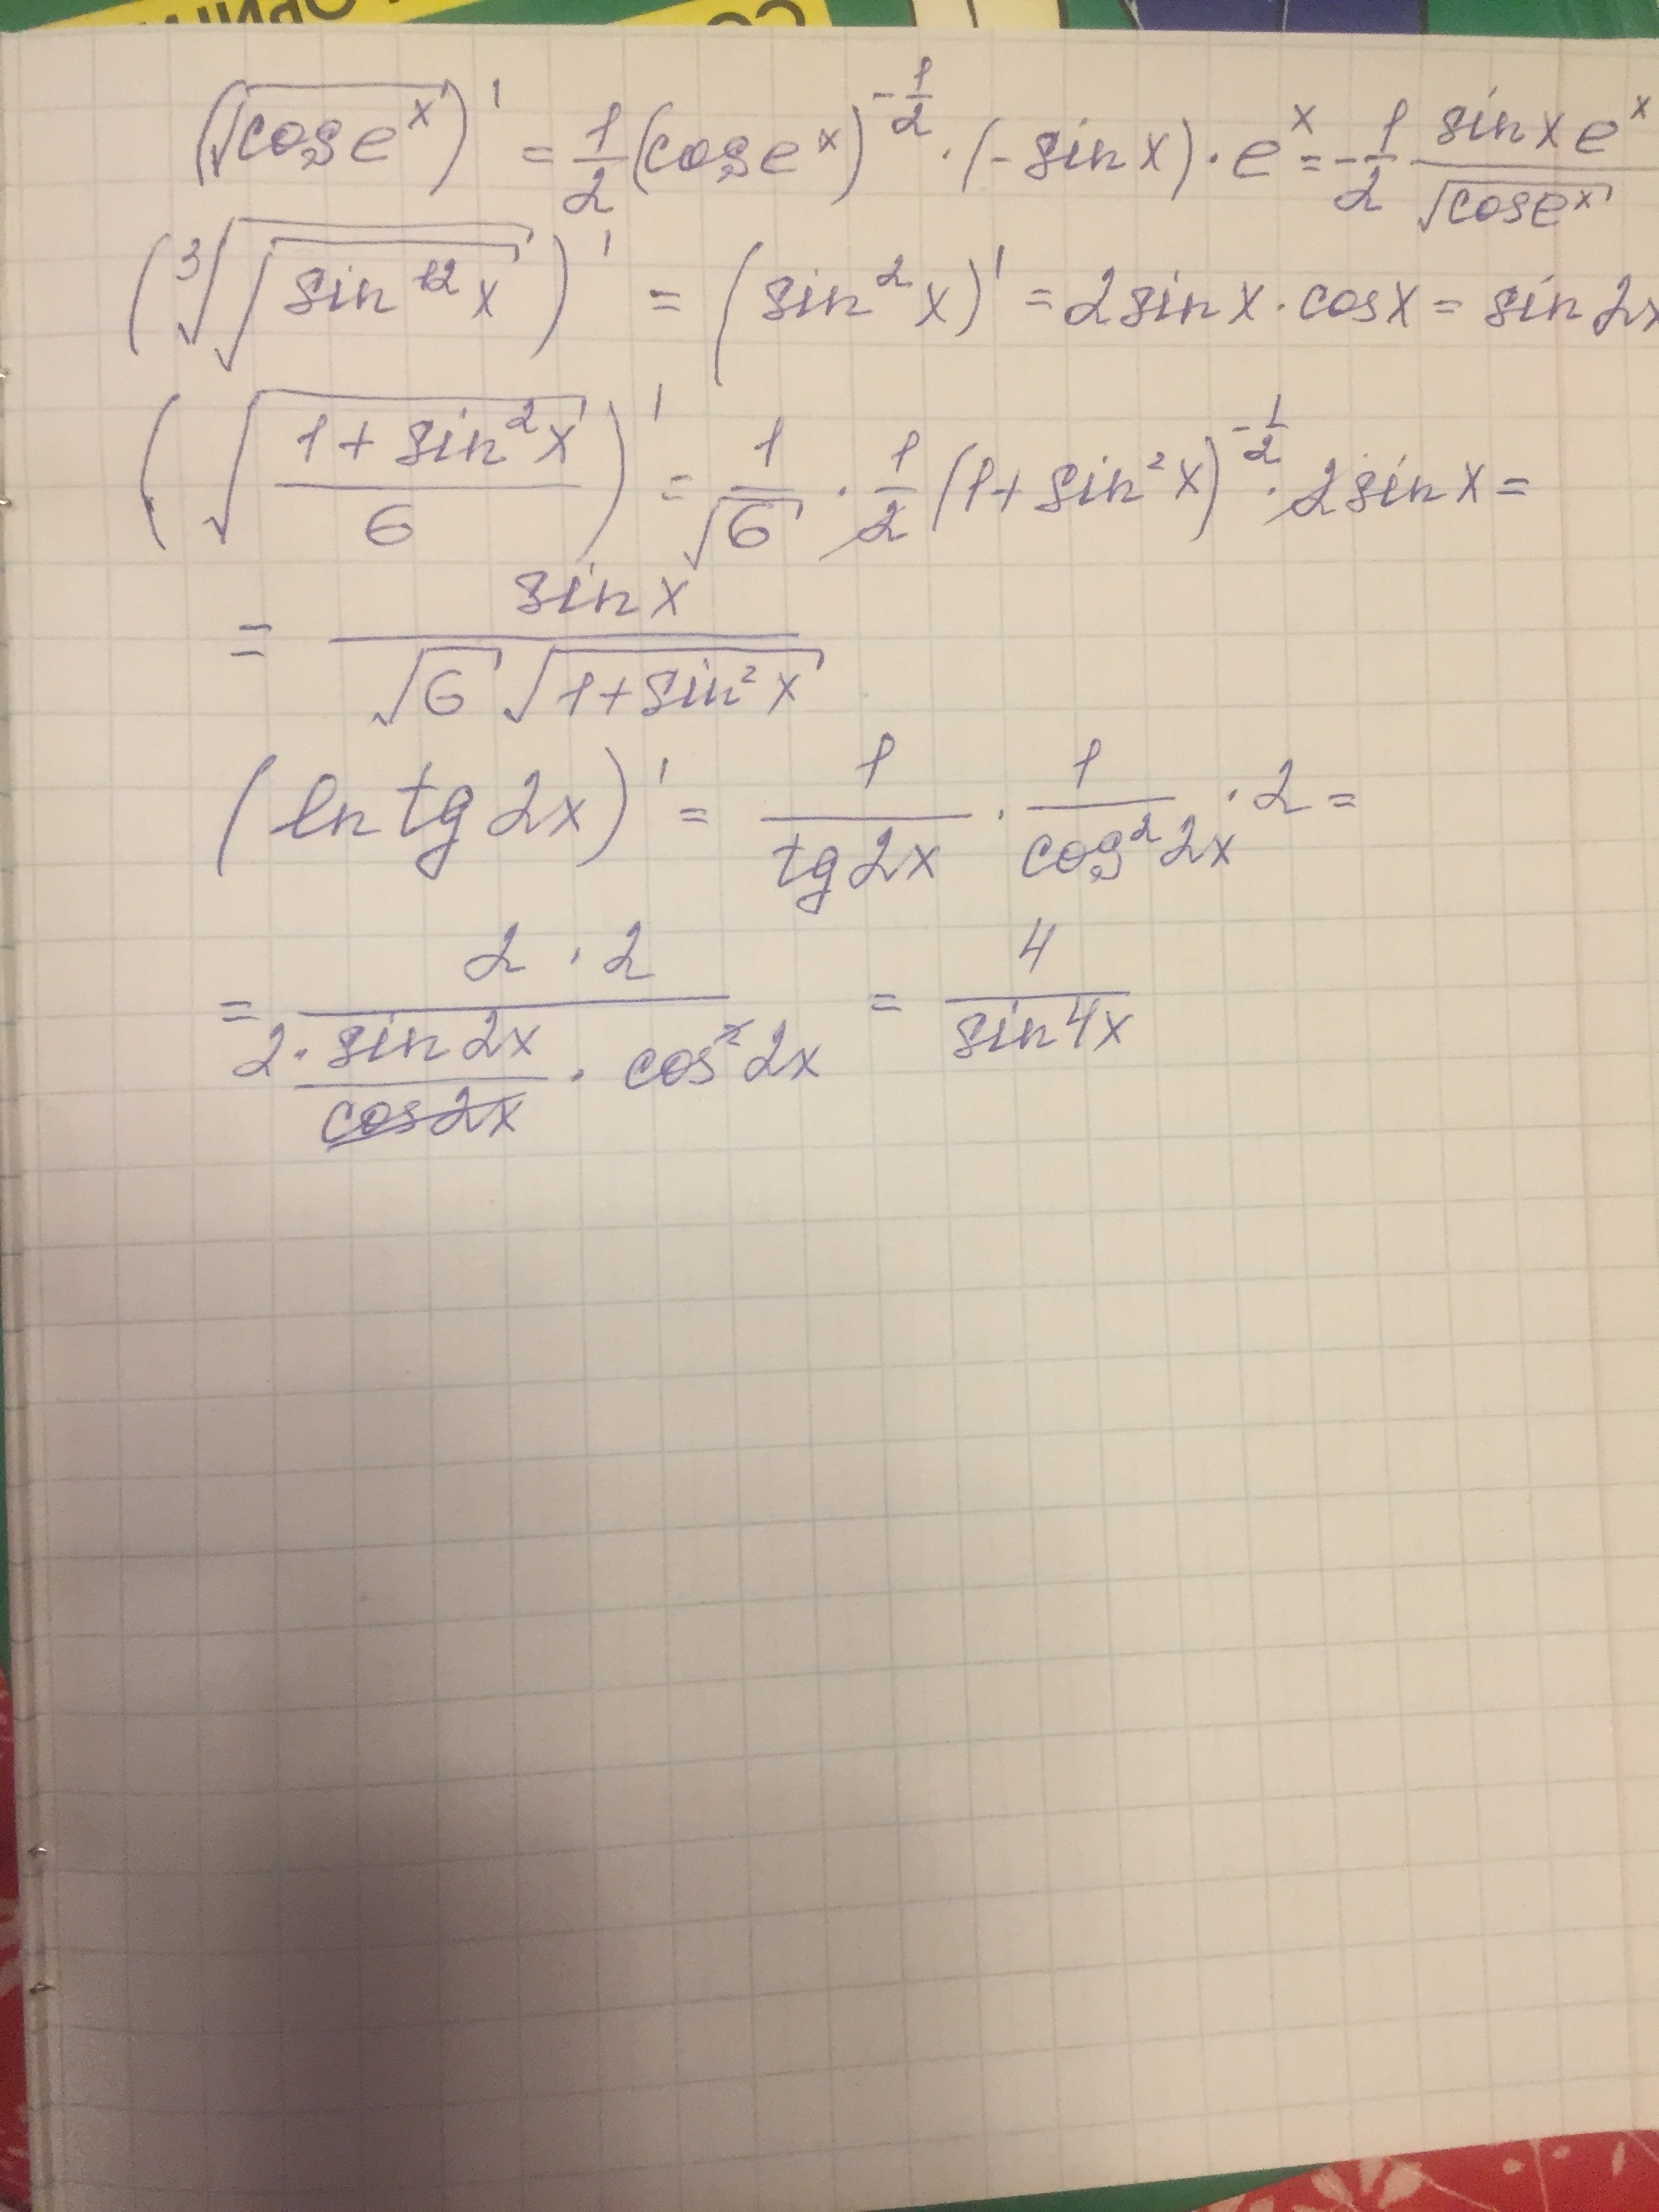 (√cos e^x)' = 1/2 (cos e^x)^(-1/2) · (-sin x) · e^x = -1/2 sin x e^x / √cos e^x
(³√√sin^12 x)' = (sin² x)' = 2 sin x · cos x = sin 2x
(√((1 + sin² x)/6))' = 1/√6 · 1/2 (1 + sin² x)^(-1/2) · 2 sin x =
= sin x / (√6 √(1 + sin² x))
(ln tg 2x)' = 1/(tg 2x) · 1/(cos² 2x) · 2 =
= 2 · 2 / (2 · (sin 2x / cos 2x) · cos² 2x) = 4 / sin 4x